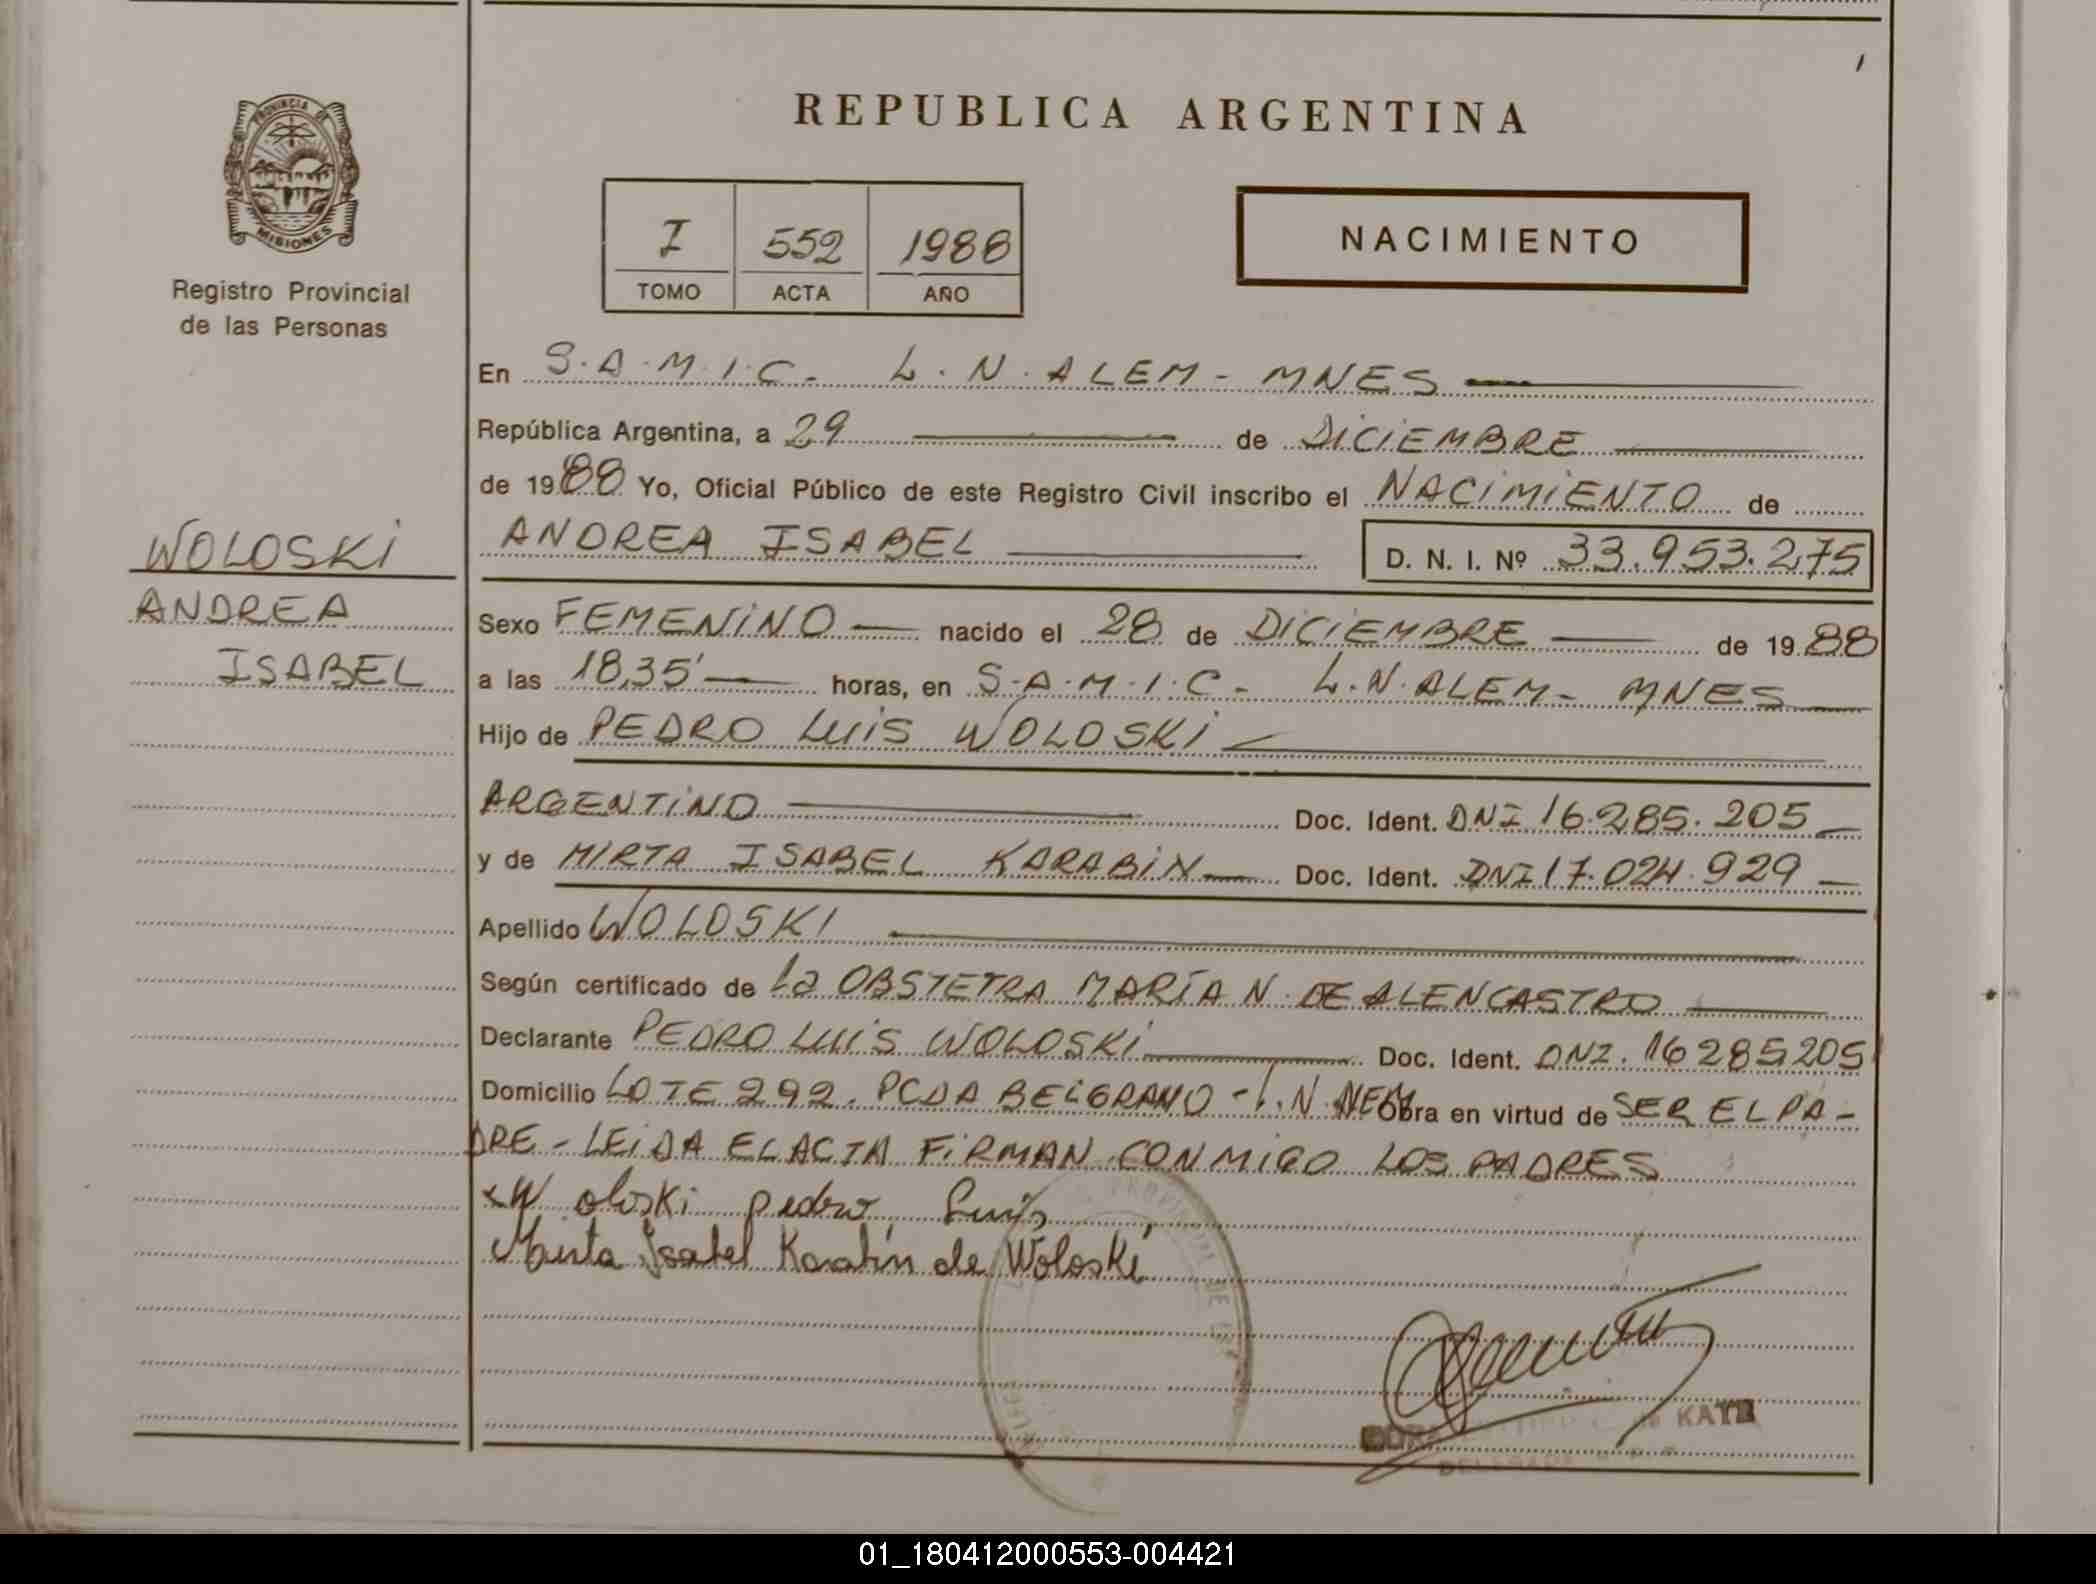 REPUBLICA ARGENTINA
PROVINCIA DE
MISIONES
Registro Provincial
de las Personas
I 552 1988
TOMO ACTA AÑO
NACIMIENTO
En S.A.M.I.C. L.N.ALEM - MNES
República Argentina, a 29 de DICIEMBRE
de 1988 Yo, Oficial Público de este Registro Civil inscribo el NACIMIENTO de
WOLOSKI
ANDREA
ISABEL
ANDREA ISABEL D. N. I. Nº 33.953.275
Sexo FEMENINO nacido el 28 de DICIEMBRE de 1988
a las 18,35' horas, en S.A.M.I.C. L.N.ALEM - MNES
Hijo de PEDRO LUIS WOLOSKI
ARGENTINO Doc. Ident. DNI 16.285.205
y de MIRTA ISABEL KARABIN Doc. Ident. DNI 17.024.929
Apellido WOLOSKI
Según certificado de La OBSTETRA MARÍA N. DE ALENCASTRO
Declarante PEDRO LUIS WOLOSKI Doc. Ident. DNI. 16285205
Domicilio LOTE 292. PCDA BELGRANO - L.N. ALEM Obra en virtud de SER EL PA-
DRE - LEIDA EL ACTA FIRMAN CONMIGO LOS PADRES
Woloski pedro Luis
Mirta Isabel Karabin de Woloski
PROVINCIAL DE
de KATE
01_180412000553-004421